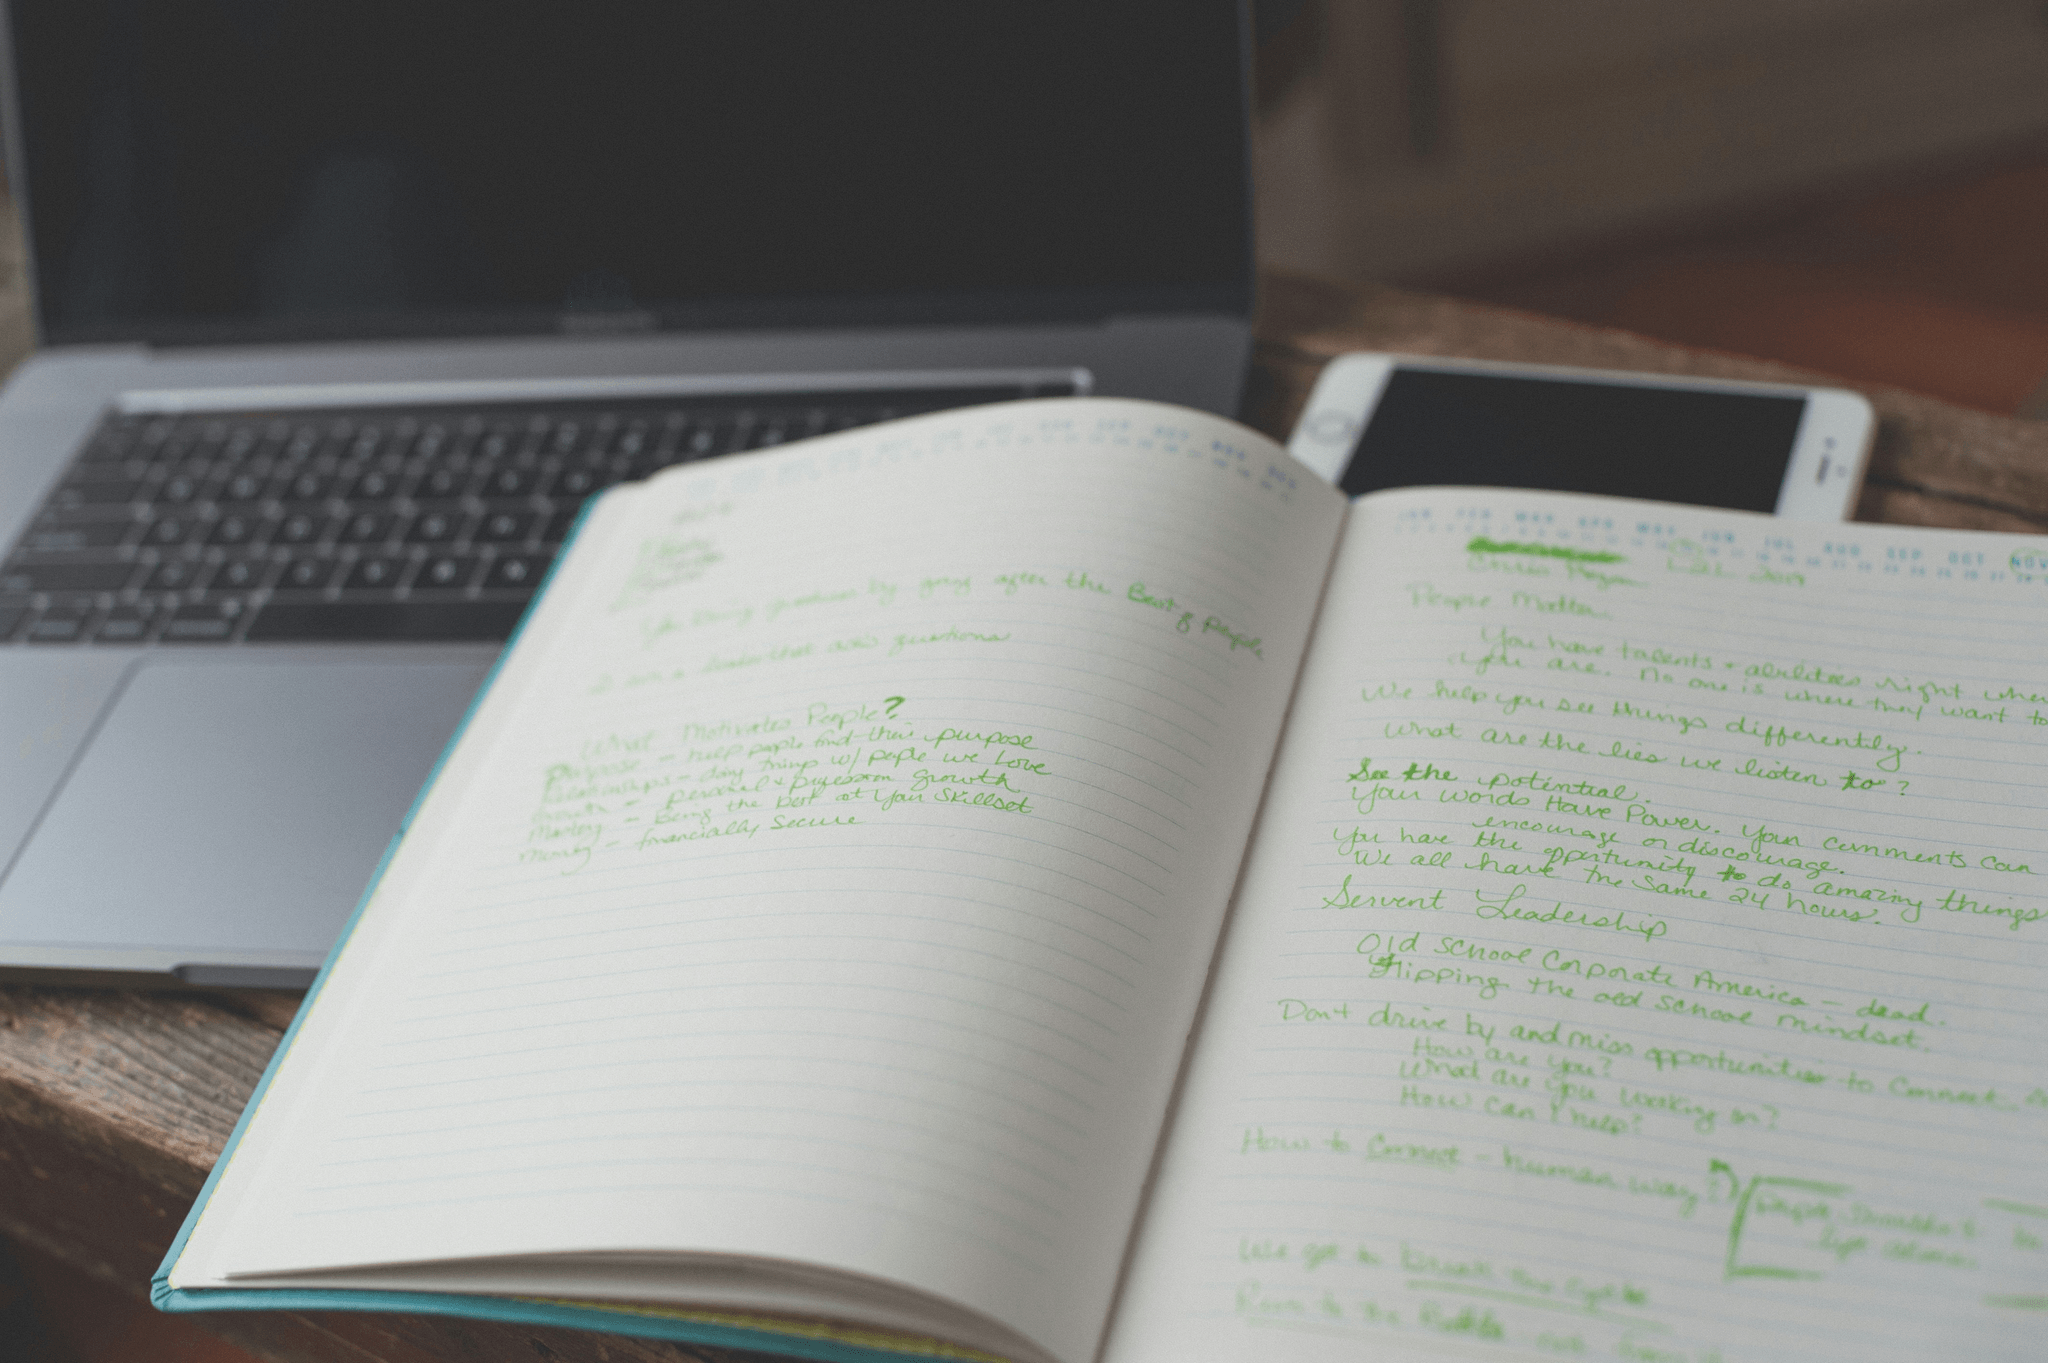 JUL AUG SEP OCT NOV DEC
by going after the Best of people
I am a leader that asks questions
What Motivates People?
Purpose - help people find their purpose
Relationships - doing things w/ people we Love
Growth - personal + growth
Mastery - Being the best at your skillset
Money - financially secure
JAN FEB MAR APR MAY JUN JUL AUG SEP OCT NOV
2019
People Matter
You have talents + abilities right where
you are. No one is where they want to
We help you see things differently.
What are the lies we listen to?
See the potential.
Your words Have Power. Your comments can
encourage or discourage.
You have the opportunity to do amazing things
We all have the same 24 hours.
Servent Leadership
Old school Corporate America - dead.
Flipping the old school mindset.
Don't drive by and miss opportunities to connect.
How are you?
What are you working on?
How can I help?
How to Connect - human way?
We get to break the cycle